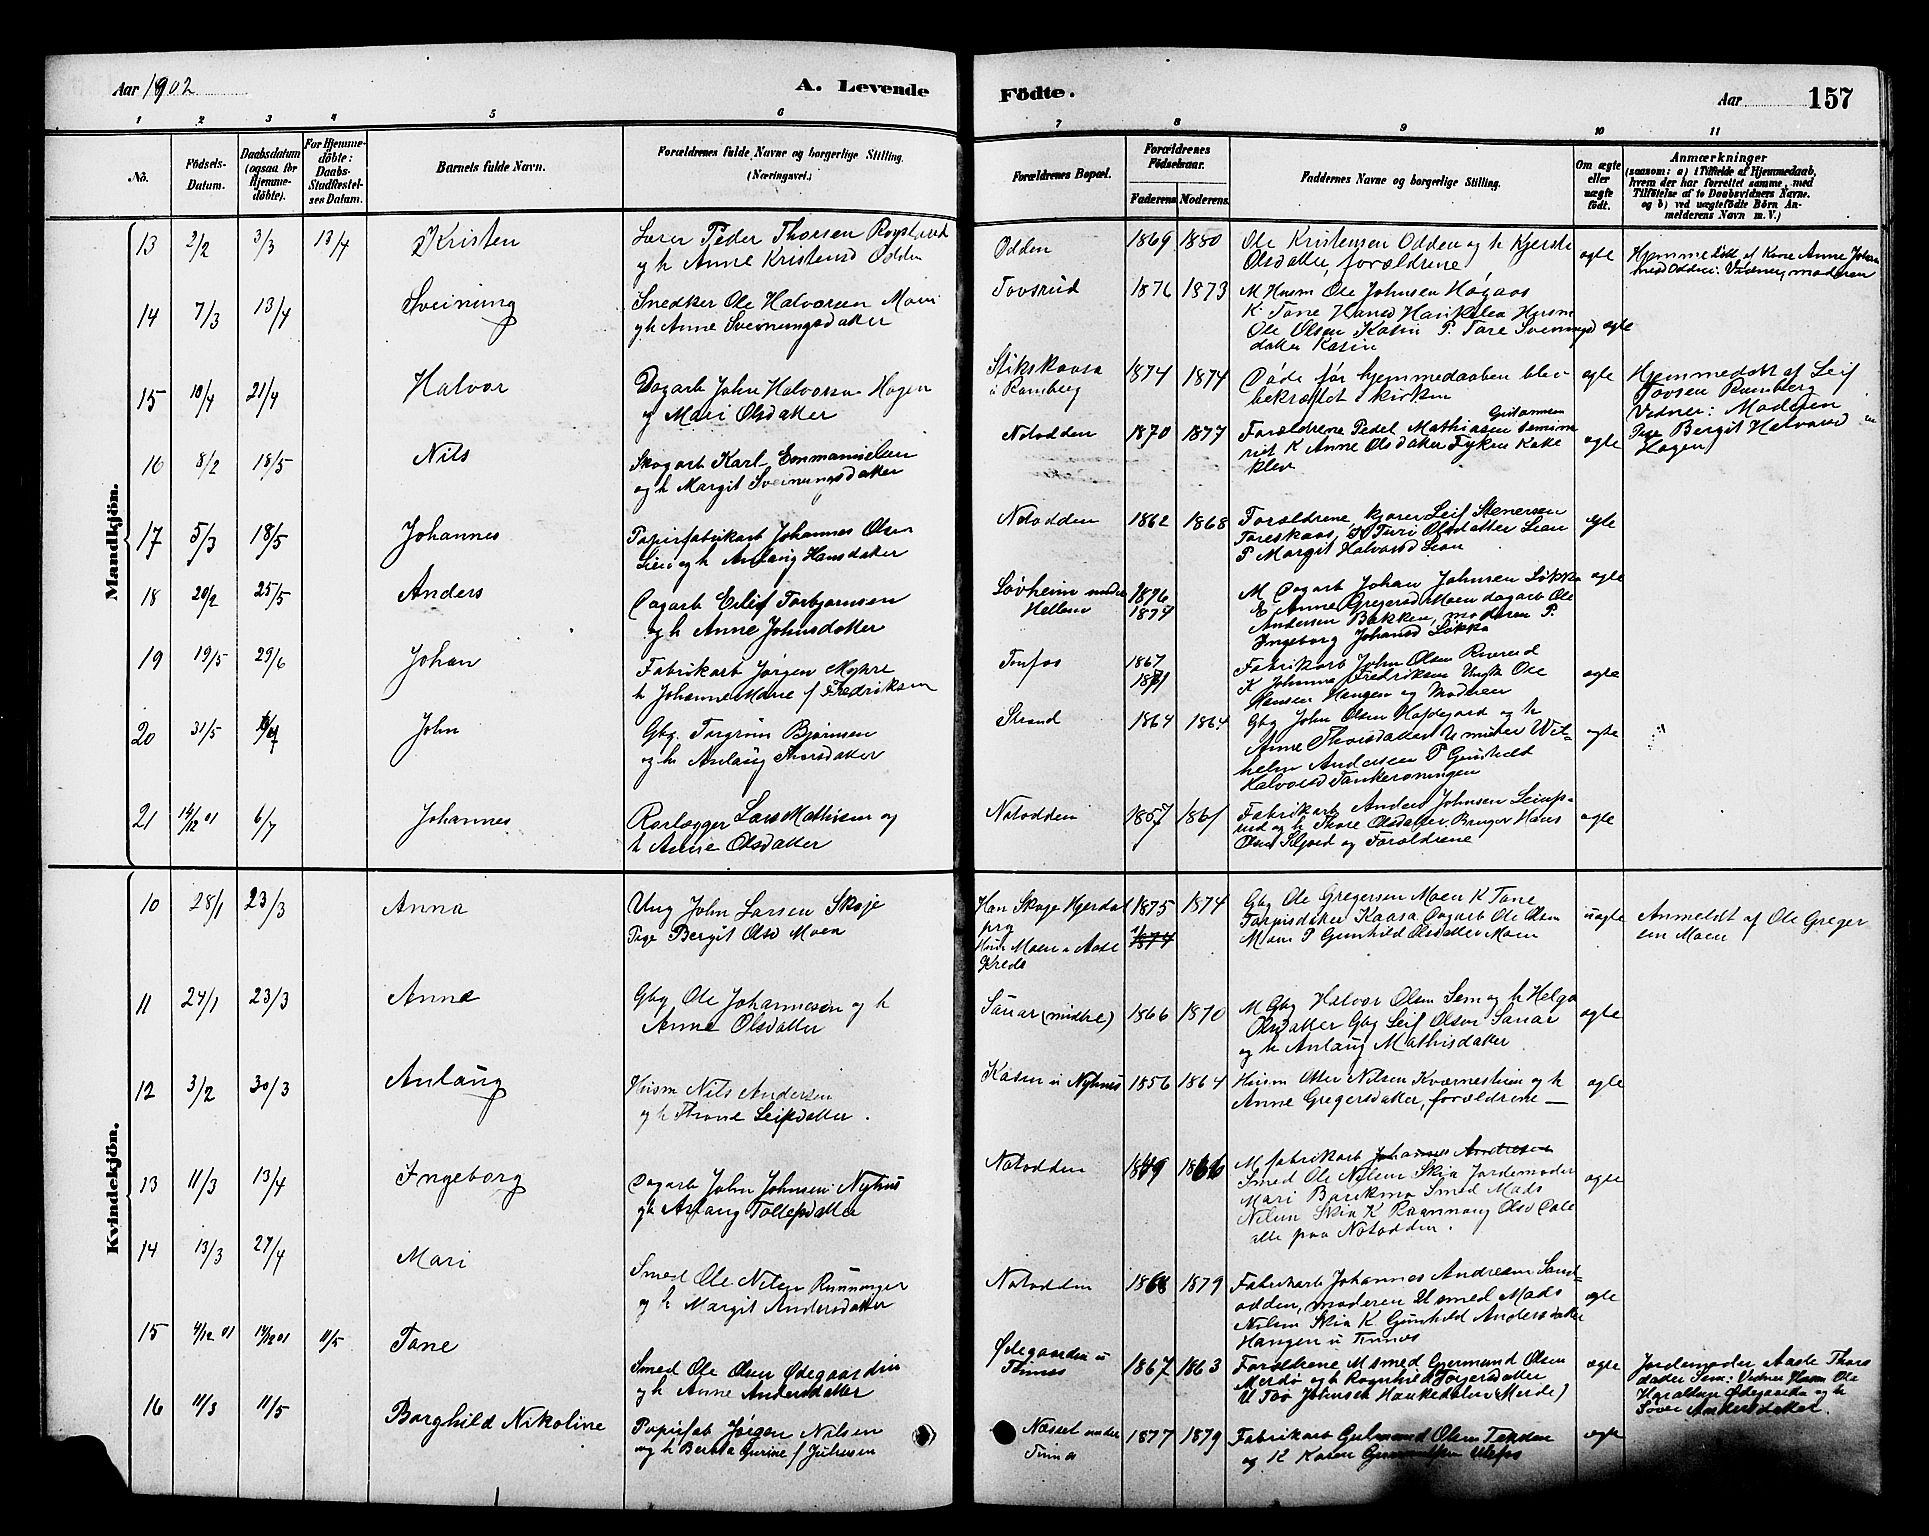 Aar 1902
A. Levende
Födte.
Aar
157
1 2 3 4 5 6 7 8 9 10 11
No.
Födsels-
Datum.
Daabsdatum
(ogsaa for
Hjemme-
döbte).
For Hjemme-
döbte:
Daabs-
Stadfæstel-
ses Datum.
Barnets fulde Navn.
Forældrenes fulde Navne og borgerlige Stilling.
(Næringsvei.)
Forældrenes Bopæl.
Forældrenes
Födselsaar.
Faderens.
Moderens.
Faddernes Navne og borgerlige Stilling.
Om ægte
eller
uægte
født.
Anmærkninger
(saasom: a) i Tilfælde af Hjemmedaab,
hvem der har forrettet samme, med
Tilföielse af to Daabsvidners Navne.
og b) ved uægtefödte Börn An-
melderens Navn m. V.)
Mandkjön.
13 2/2 3/3 13/4 Kristen
Lærer Peder Thorsen
og h Anne Kristensd Odden
Odden 1869 1880
Ole Kristensen Odden og h Kjersti
Olsdatter, forældrene
ægte
Hjemmedøbt af Kone Anne Johan
nesd Odden: Vidner, moderen
14 7/3 13/4 Sveinung
Snedker Ole Halvorsen Moen
og h Anne Sveinungsdatter
Tovsrud 1876 1873
M Husm Ole Johnsen Høgaas
K Tone Hansd Husm
Ole Olsen Kasin P. Tore Sveinungs
datter Kasin
ægte
15 10/4 21/4 Halvor
Dagarb John Halvorsen Hagen
og Mari Olsdatter
i Ramberg 1874 1874
Døde før hjemmedaaben blev
bekræftet i kirken
ægte
Hjemmedøbt af Leif
Tovsen Ramberg
Vidner: Moderen
Pige Bergit Halvorsd
Hagen
16 8/2 18/5 Nils
Skogarb Karl Emmanuelsen
og h Margit Sveinungsdatter
Notodden 1870 1877
Forældrene Peder Mathiasen
K Anne Olsdatter
klev
ægte
17 5/3 18/5 Johannes
Papirfabrikarb Johannes Olsen
Lien og h Anlaug Hansdatter
Notodden 1862 1868
Forældrene, kjører Leif Stenersen
Toreskaas, K Turi Olsdatter Lian
P Margit Halvorsd Lian
ægte
18 20/2 25/5 Anders
Dagarb Eilif Torbjørnsen
og h Anne Johnsdatter
Løvheim under
Hellem
1876
1874
M Dagarb Johan Johnsen Løkka
K Anne Gregersd Moen dagarb Ole
Andersen Bakken, moderen P.
Ingeborg Johansd Løkka
ægte
19 19/5 29/6 Johan
Fabrikarb Jørgen Myhre
h Johanne Marie f Fredriksen
Tinfos
1867
1871
Fabrikarb John Olsen
K Johanne Fredriksen Ungk Ole
Hansen Haugen og Moderen
ægte
20 31/5 6/7 John
Gbg. Torgrim Bjørnsen
og h Anlaug Thorsdatter
Strand 1864 1864
Gbg John Olsen Høidegaard og h
Anne Thorsdatter Urmaker Wil-
helm Andersen P Gunhild
Halvorsd
ægte
21 14/12 01 6/7 Johannes
Rørlægger Lars Mathisen og
h Anne Olsdatter
Notodden 1857 1861
Fabrikarb Anders Johnsen
og h Thore Olsdatter, Bruger Hans
Olsen og Forældrene
ægte
Kvindekjön.
10 28/1 23/3 Anna
Ung John Larsen Skoje
Pige Bergit Olsd Moen
Han Skoje Hjerdal
prg
Hun Moen i Aadl
Kreds
1875 1874
1874
Gbg Ole Gregersen Moen K Tone
Torgrisdatter Kaasa Dagarb Ole Olsen
Moen P Gunhild Olsdatter Moen
uægte
Anmeldt af Ole Greger
sen Moen
11 24/1 23/3 Anne
Gbg Ole Johannesen og h
Anne Olsdatter
Sanar (midtre) 1866 1870
M Gbg Halvor Olsen Sem og h Helga
Olsdatter Gbg Leif Olsen Sanar
og h Anlaug Mathisdatter
ægte
12 3/2 30/3 Anlaug
Husm Nils Andersen
og h Thone Leifsdatter.
Kasin u Nyhus 1856 1864
Husm Otter Nilsen Kværnestuen og h
Anne Gregersdatter, forældrene —
ægte
13 11/3 13/4 Ingeborg
Dagarb John Johnsen Nyhus
og h Anlaug Tollefsdatter
Notodden 1869 1866
M fabrikarb Johannes Andresen
Smed Ole Nilsen Skia Jordemoder
Mari Smed Mads
Nilsen Skia K Rannaug Olsd Dale
alle paa Notodden.
ægte
14 13/3 27/4 Mari
Smed Ole Nilsen
og h Margit Andersdatter
Notodden 1868 1879
Fabrikarb Johannes Andresen Sand-
odden, moderen U smed Mads
Nilsen Skia K. Gunhild Andersdatter
Haugen u Tinnes
ægte
15 4/12 01 14/12 01 11/5 Tone
Smed Ole Olsen Ødegaarden
og h Anne Andersdatter
Ødegaarden u
Tinnes
1867 1863
Forældrene M smed Gjermund Olsen
Merdø og h Ragnhild Torgersdatter
U Tov Johnsen Haukedalen (Merde)
ægte
Jordemoder Aade Thors
datter Sem: Vidner Husm Ole
Haraldsen Ødegaarden og h
Andersdatter.
16 11/3 11/5 Borghild Nikoline
Papirfab Jørgen Nilsen
og h Berta Gurine f Juliussen
Næsset under
Tinne
1877 1879
Fabrikarb Gulmund Olsen
og K Karen Ulefos
ægte